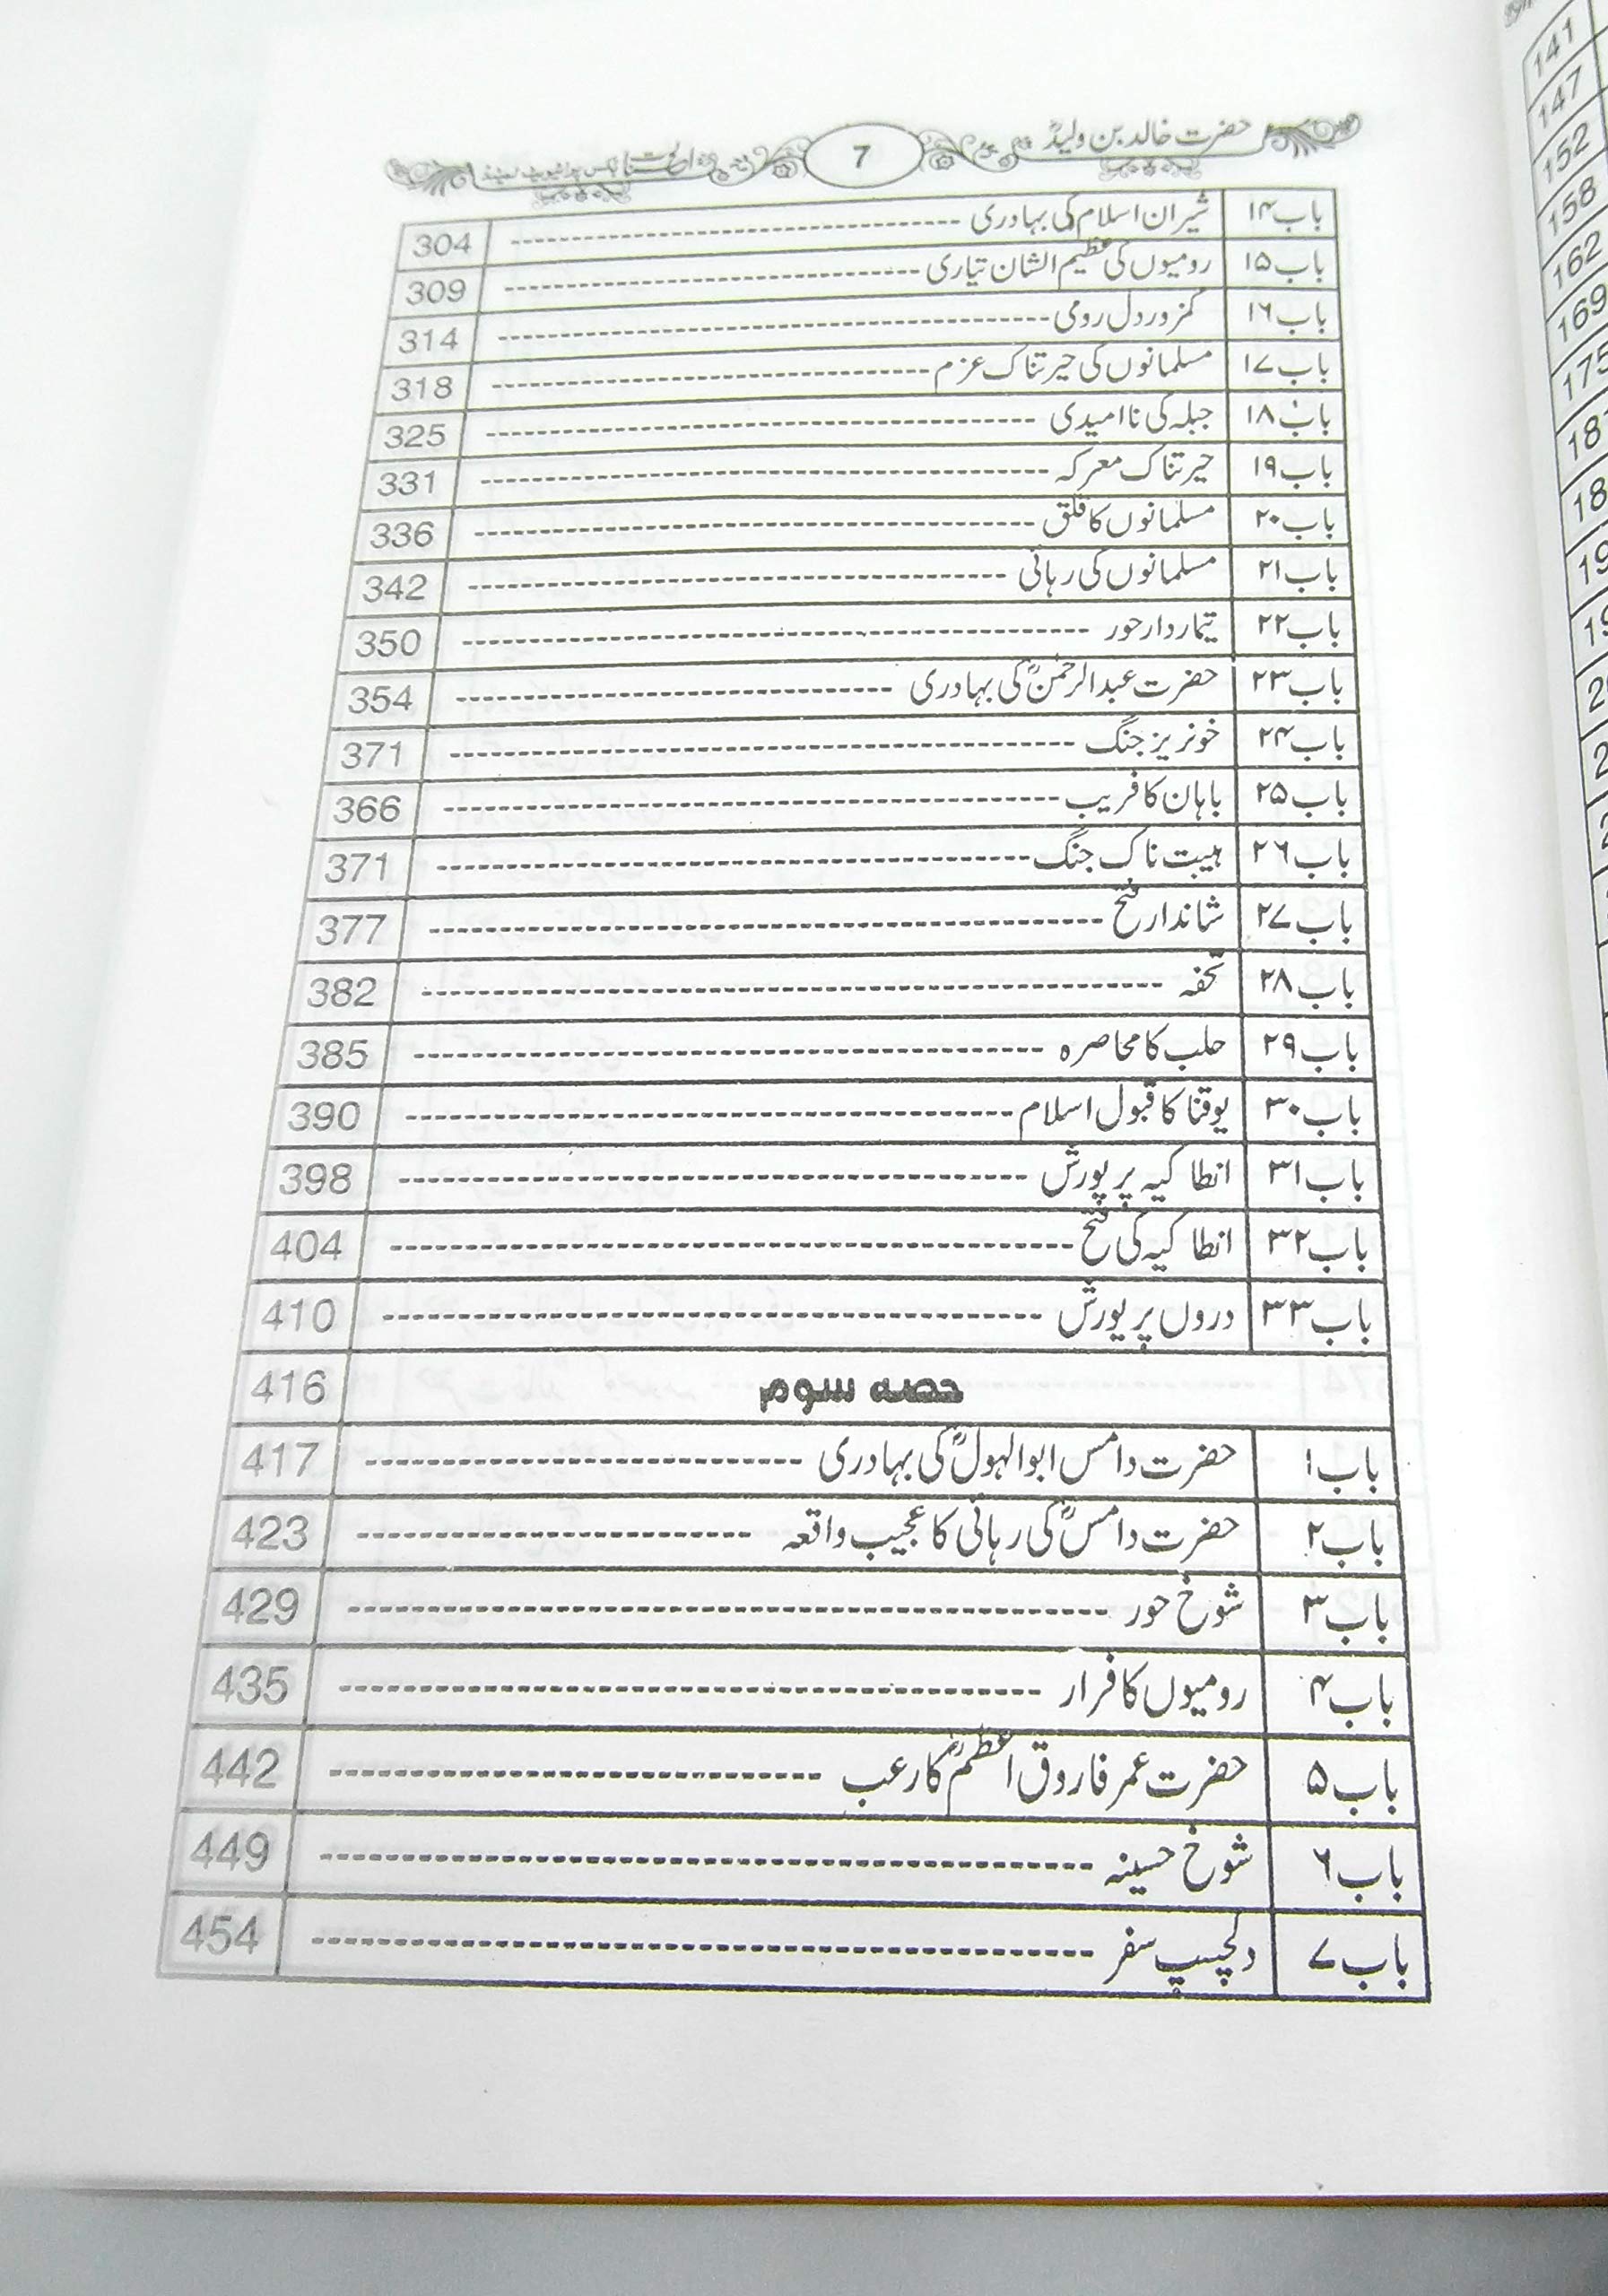 حضرت خالد بن ولیدؓ
7
باب ۱۴ شیران اسلام کی بہادری 304
باب ۱۵ رومیوں کی عظیم الشان تیاری 309
باب ۱۶ کمزور دل رومی 314
باب ۱۷ مسلمانوں کی حیرتناک عزم 318
باب ۱۸ جبلہ کی ناامیدی 325
باب ۱۹ حیرتناک معرکہ 331
باب ۲۰ مسلمانوں کا قلق 336
باب ۲۱ مسلمانوں کی رہائی 342
باب ۲۲ تیماردار حور 350
باب ۲۳ حضرت عبدالرحمٰنؓ کی بہادری 354
باب ۲۴ خونریز جنگ 371
باب ۲۵ باہان کا فریب 366
باب ۲۶ ہیبت ناک جنگ 371
باب ۲۷ شاندار فتح 377
باب ۲۸ تحفہ 382
باب ۲۹ حلب کا محاصرہ 385
باب ۳۰ یوقنا کا قبول اسلام 390
باب ۳۱ انطاکیہ پر یورش 398
باب ۳۲ انطاکیہ کی فتح 404
باب ۳۳ دروں پر یورش 410
حصہ سوم 416
باب ۱ حضرت دامس ابوالہولؓ کی بہادری 417
باب ۲ حضرت دامسؓ کی رہائی کا عجیب واقعہ 423
باب ۳ شوخ حور 429
باب ۴ رومیوں کا فرار 435
باب ۵ حضرت عمر فاروق اعظمؓ کا رعب 442
باب ۶ شوخ حسینہ 449
باب ۷ دلچسپ سفر 454
141
147
152
158
162
169